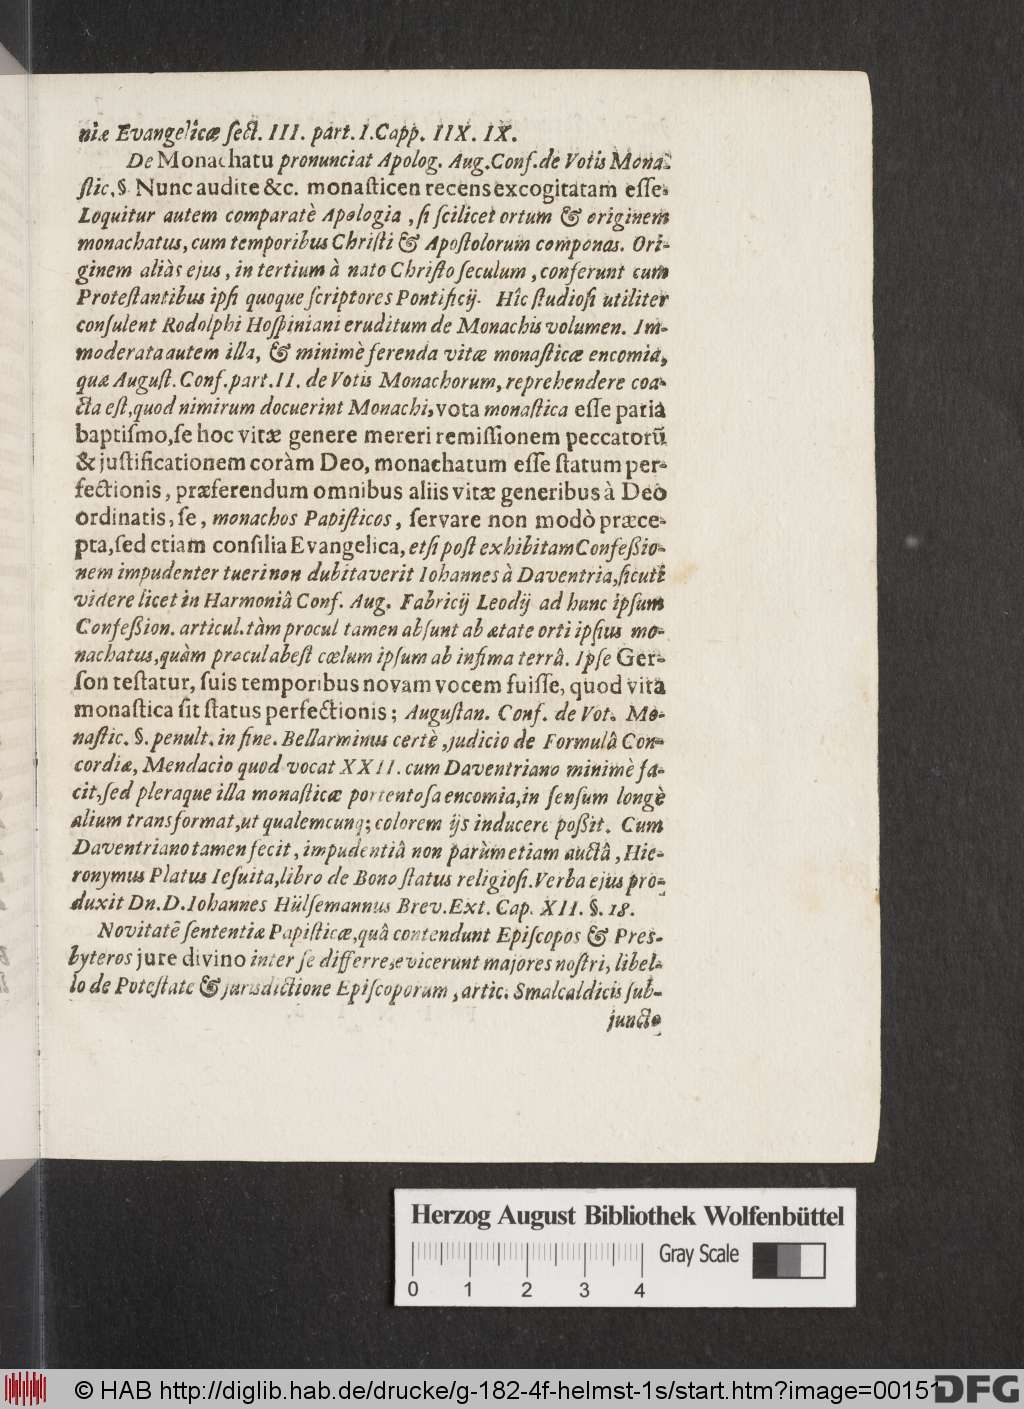 niæ Evangelicæ ſect. III. part. I. Capp. IIX. IX.
De Monachatu pronunciat Apolog. Aug. Conf. de Votis Mona-
ſtic. §. Nunc audite &c. monaſticen recens excogitatam eſſe.
Loquitur autem comparatè Apologia, ſi ſcilicet ortum & originem
monachatus, cum temporibus Chriſti & Apoſtolorum componas. Ori-
ginem aliàs ejus, in tertium à nato Chriſto ſeculum, conferunt cum
Proteſtantibus ipſi quoque ſcriptores Pontificij. Hîc ſtudioſi utiliter
conſulent Rodolphi Hoſpiniani eruditum de Monachis volumen. Im-
moderata autem illa, & minimè ferenda vitæ monaſticæ encomia,
quæ Auguſt. Conf. part. II. de Votis Monachorum, reprehendere coa-
cta eſt, quod nimirum docuerint Monachi, vota monaſtica eſſe paria
baptiſmo, ſe hoc vitæ genere mereri remiſſionem peccatorū
& juſtificationem coràm Deo, monachatum eſſe ſtatum per-
fectionis, præferendum omnibus aliis vitæ generibus à Deo
ordinatis, ſe, monachos Papiſticos, ſervare non modò præce-
pta, ſed etiam conſilia Evangelica, etſi poſt exhibitam Confeßio-
nem impudenter tueri non dubitaverit Iohannes à Daventria, ſicuti
videre licet in Harmoniâ Conf. Aug. Fabricij Leodij ad hunc ipſum
Confeßion. articul. tàm procul tamen abſunt ab ætate orti ipſius mo-
nachatus, quàm procul abeſt cœlum ipſum ab infima terrâ. Ipſe Ger-
ſon teſtatur, ſuis temporibus novam vocem fuiſſe, quod vita
monaſtica ſit ſtatus perfectionis; Auguſtan. Conf. de Vot. Mo-
naſtic. §. penult. in fine. Bellarminus certè, judicio de Formulâ Con-
cordiæ, Mendacio quod vocat XXII. cum Daventriano minimè fa-
cit, ſed pleraque illa monaſticæ portentoſa encomia, in ſenſum longè
alium transformat, ut qualemcunq; colorem ijs inducere poßit. Cum
Daventriano tamen fecit, impudentiâ non parùm etiam auctâ, Hie-
ronymus Platus Ieſuita, libro de Bono ſtatus religioſi. Verba ejus pro-
duxit Dn. D. Iohannes Hülſemannus Brev. Ext. Cap. XII. §. 18.
Novitatē ſententiæ Papiſticæ, quâ contendunt Epiſcopos & Pres-
byteros jure divino inter ſe differre, evicerunt majores noſtri, libel-
lo de Poteſtate & jurisdictione Epiſcoporum, artic. Smalcaldicis ſub-
juncto
Herzog August Bibliothek Wolfenbüttel
Gray Scale
0 1 2 3 4
© HAB http://diglib.hab.de/drucke/g-182-4f-helmst-1s/start.htm?image=00151
DFG